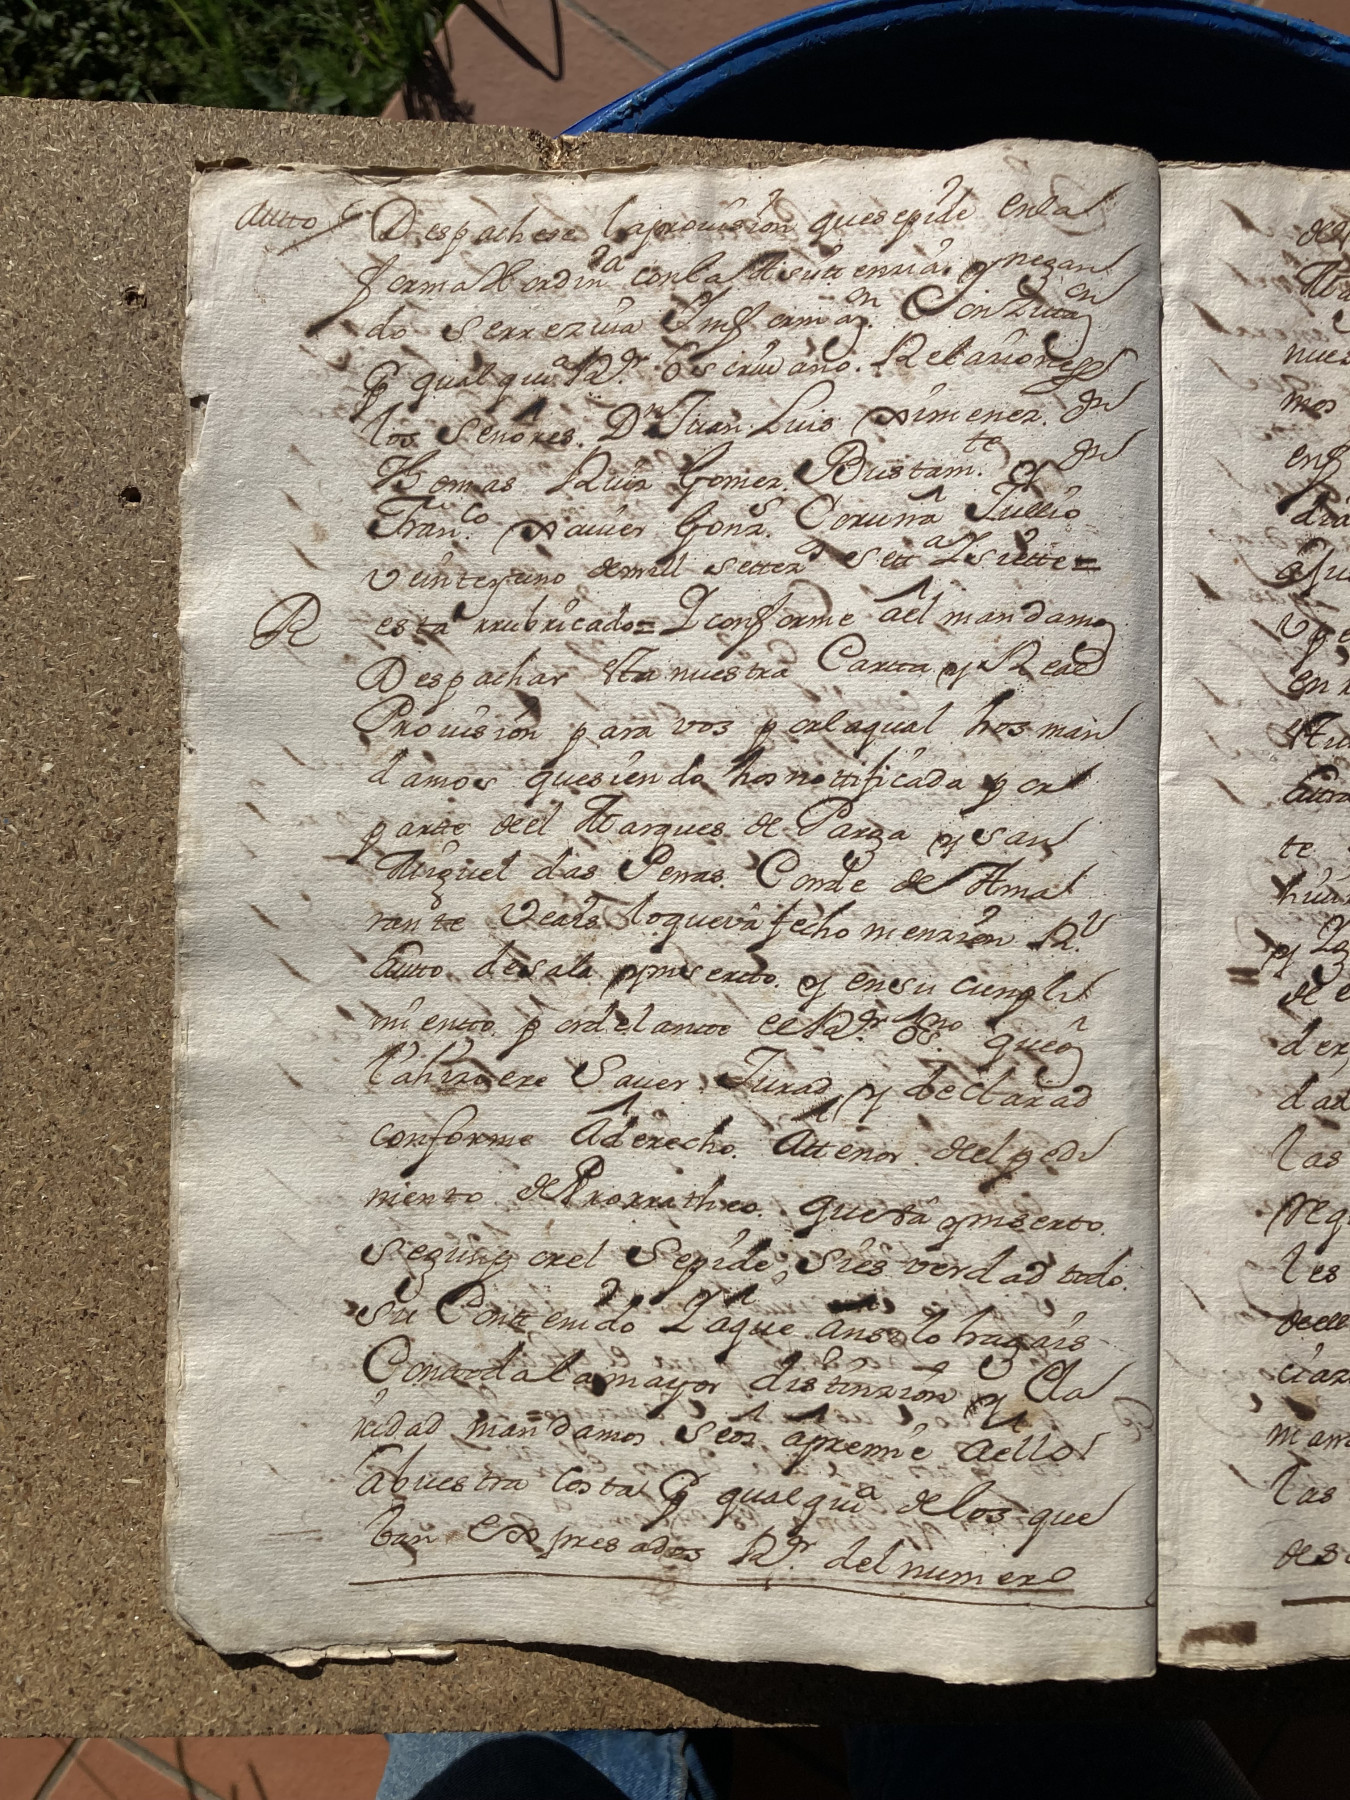 Autto Despachese laprovision quesepide enla
forma Hordin.a conla Asistenzia. y negan
do serrezivia Ymformaz.on Conzitaz.on
P qualqui.a R.r Escrivano. Relaziones
los Señores. D.n Juan Luis Ximenez. Dn
Thomas Ruiz Gomez Bustam.te y Dn
Fran.co Xavier Gonz.s Coruña Jullio
veinteyuno demill settez.s sett.a Ysiette=
R esta rrubricado= Yconforme ael mandamos
Despachar esta nuestra Cartta y Real
Provision para vos porlaqual hos man
damos quesiendo hos nottificada por
parte deel Marques de Parga y san
Miguel das Penas. Conde de Ama
rante Veais loqueva fecho menzion R.l
Autto desala ynserto. y ensu cumpli
miento. por delantte el R.r Es.no queos
lahiziere Saver. Jurad y declarad
conforme Aderecho. Attenor deel pedi
miento de Prorratheo. queva ynserto.
segun porel Sepide, sies verdad todo.
su Conttenido Yaque ansilo hagais
Contoda lamayor distinzion y Cla
ridad mandamos seos apremie aello
abuestra costa P qualqui.a delos que
ban expresados R.r del numero